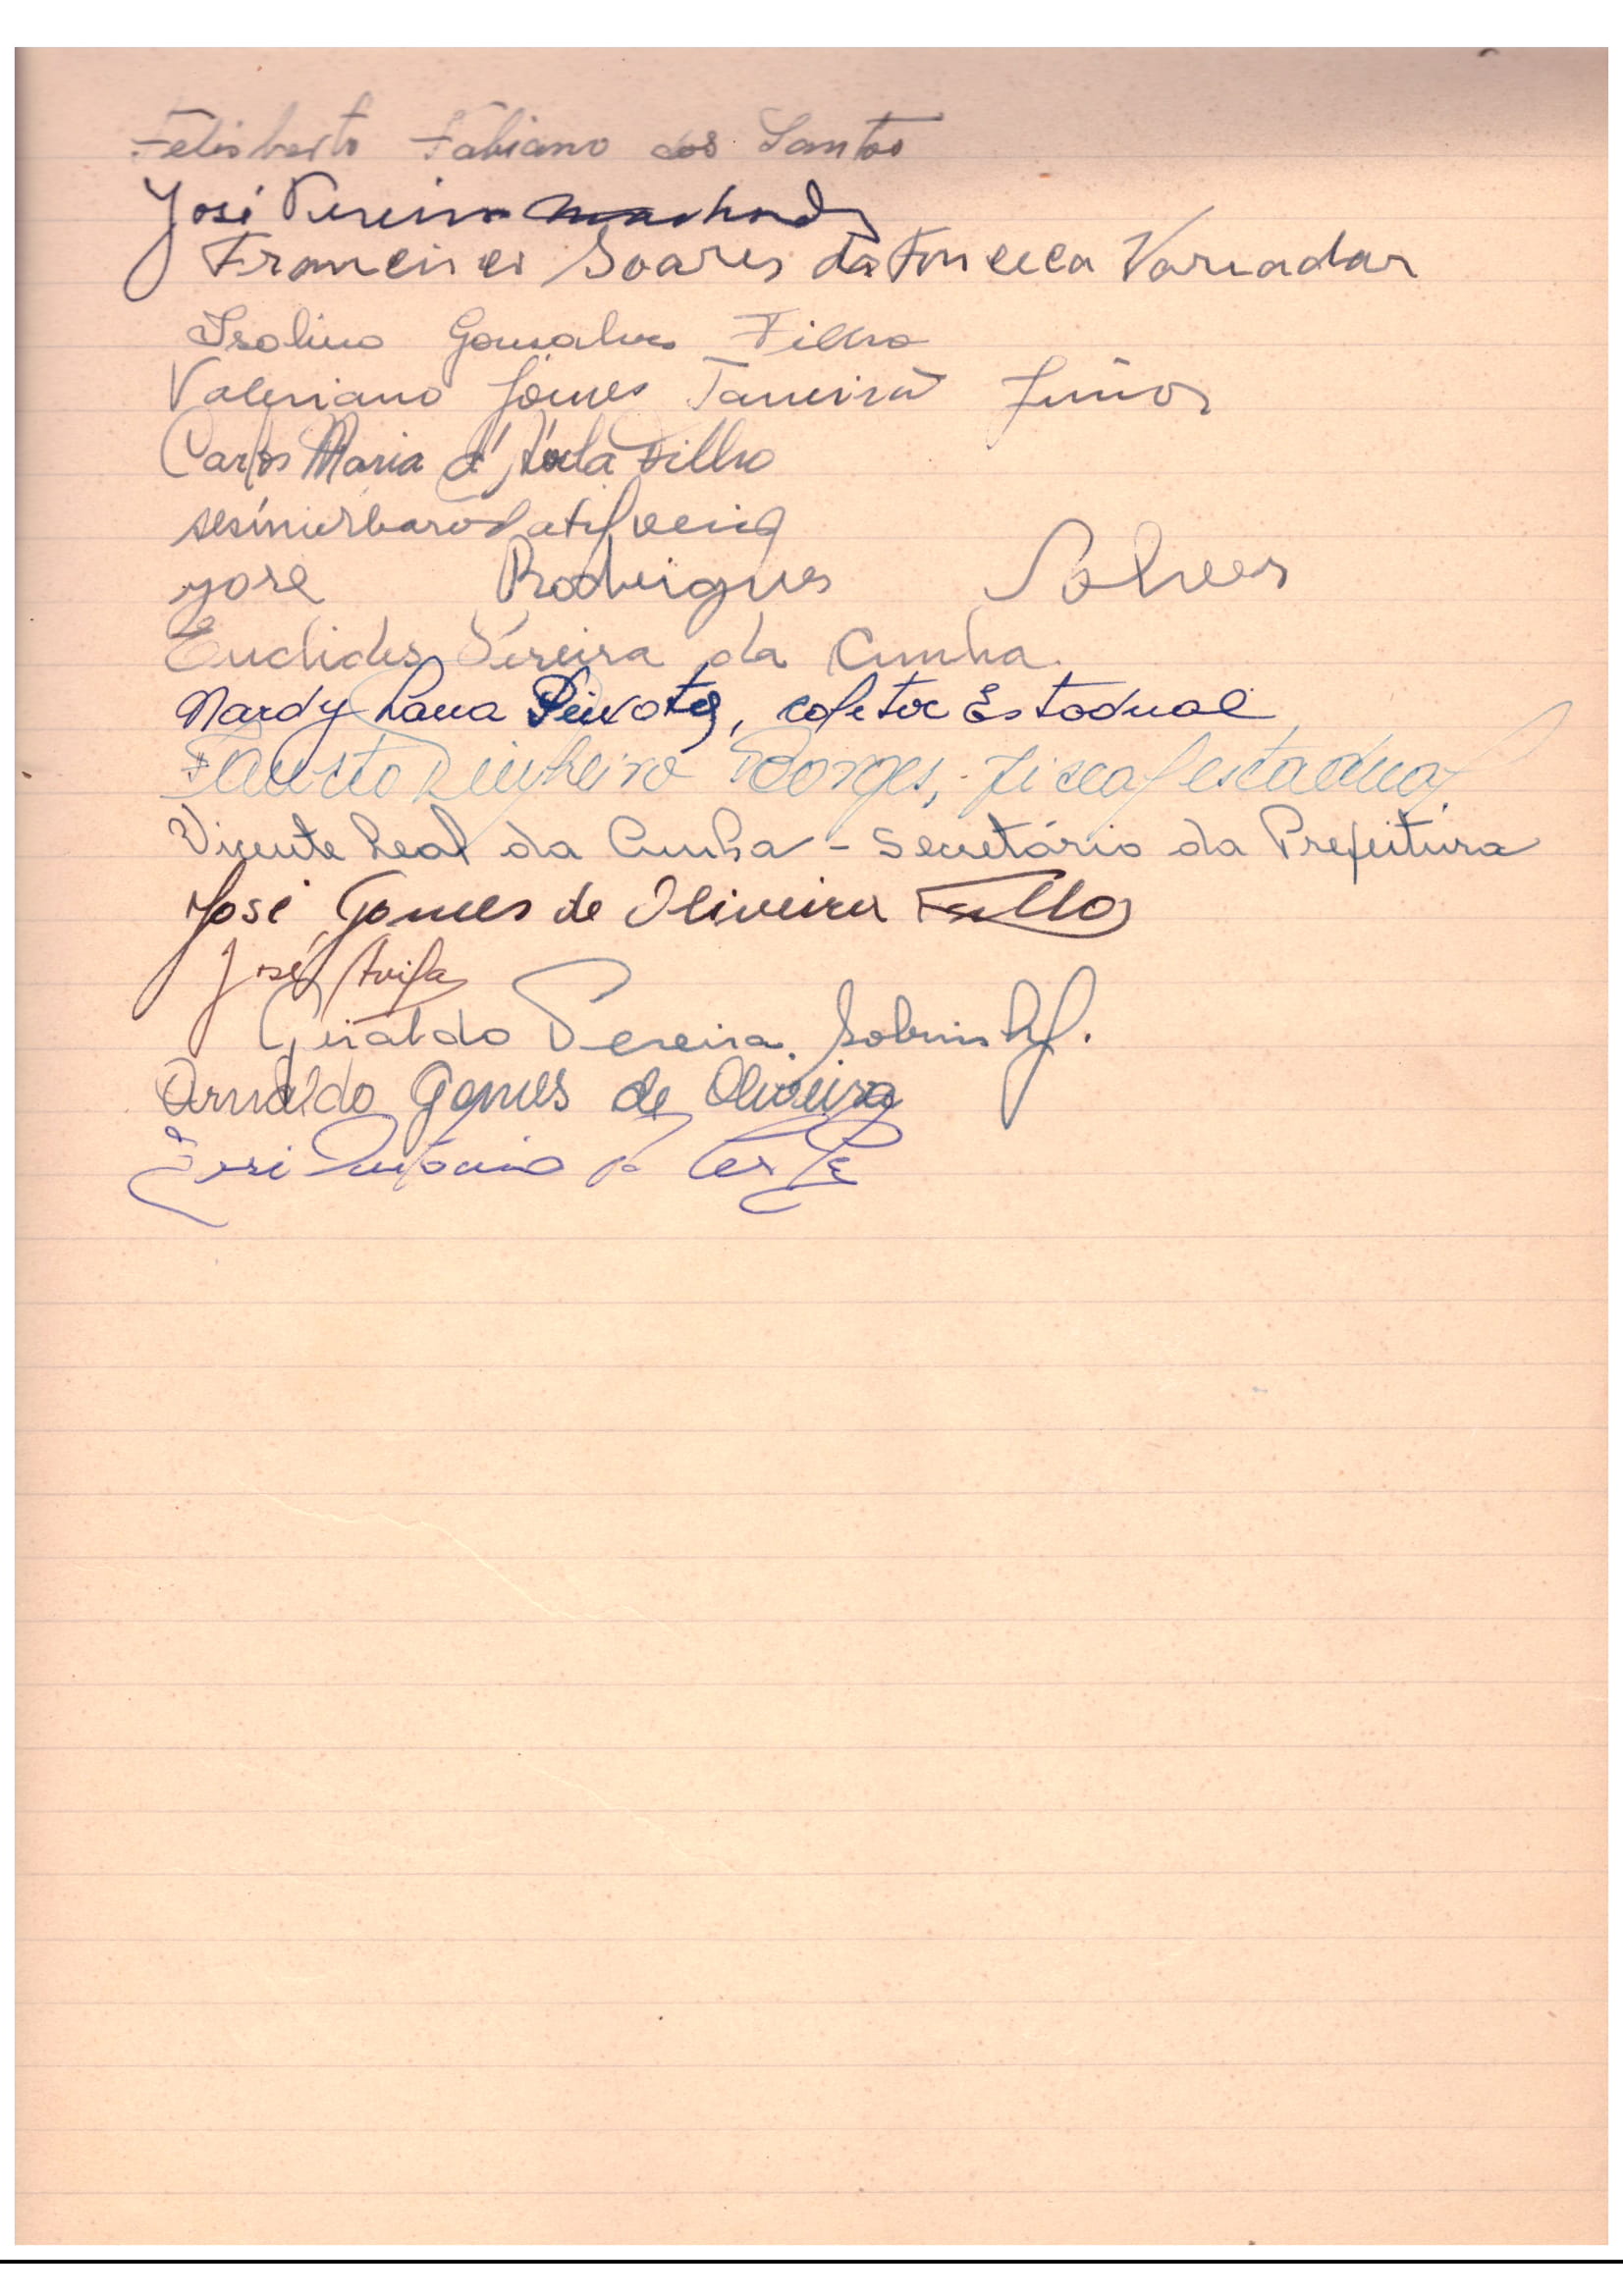 Felisberto Fabiano dos Santos
José Pereira Machado
Francisco Soares da Fonceca Variador
Isolino Gonsalves Filho
Valeriano Gomes Júnior
Carlos Maria d'Ávila Filho
jose Rodrigues
Euclides Pereira da Cunha.
Nardy Lana Peixoto, coletor Estadual
Fausto Pinheiro Borges, - fiscal estadual
Vicente Leal da Cunha - Secretário da Prefeitura
José Gomes de Oliveira Filho
José Avila
Geraldo Pereira Sobrinho.
Arnaldo Gomes de Oliveira
José Antônio da